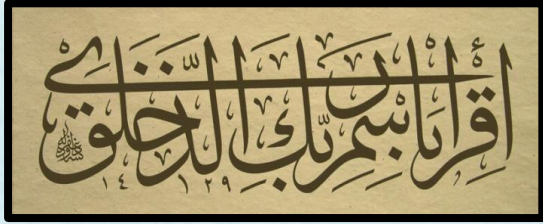 اقْرَأْ بِاسْمِ رَبِّكَ الَّذِي خَلَقَ
١٤٢٩